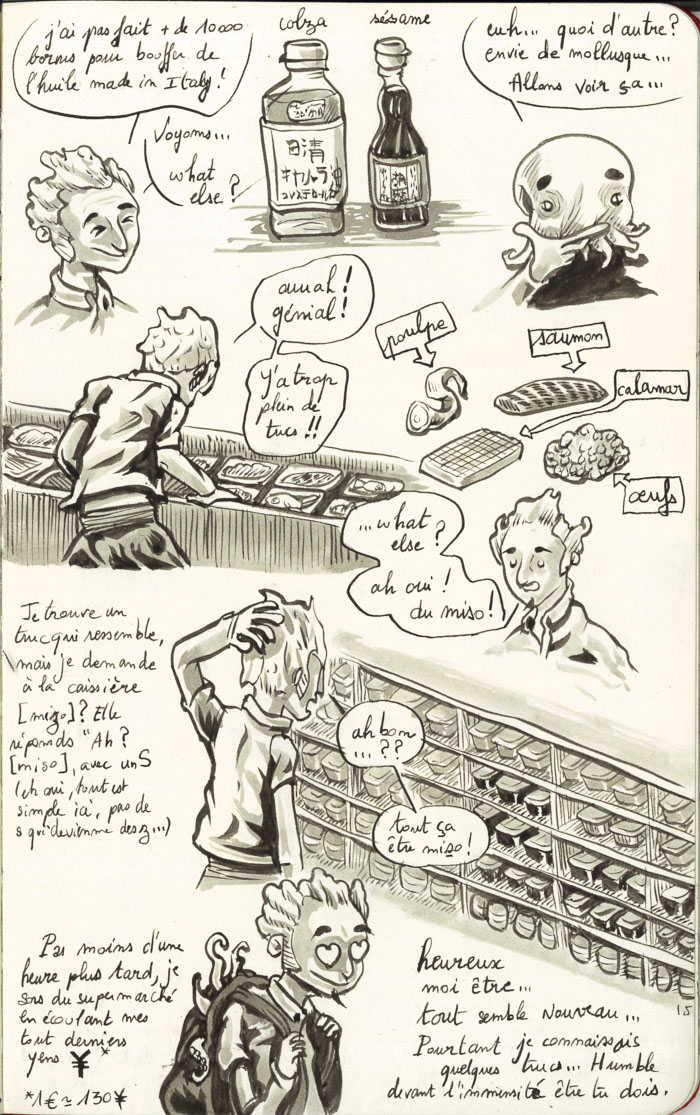 j'ai pas fait + de 10000
bornes pour bouffer de
l'huile made in Italy !
Voyons...
what
else ?
colza
sésame
euh... quoi d'autre ?
envie de mollusque...
Allons voir ça...
日清
キャノーラ油
コレステロール
ouuah !
génial !
y'a trop
plein de
tucs !!
poulpe
saumon
calamar
œufs
...what
else ?
ah oui !
du miso !
Je trouve un
truc qui ressemble,
mais je demande
à la caissière
[mizo] ? Elle
réponds "Ah ?
[miso], avec un S
(eh oui, tout est
simple ici, pas de
s qui devienne des z...)
ah bon
...??
tout ça
être miso !
Pas moins d'une
heure plus tard, je
sors du supermarché
en écoulant mes
tout derniers
yens ¥ *
*1€ ≃ 130¥
heureux
moi être...
tout semble nouveau...
Pourtant je connaissais
quelques trucs... Humble
devant l'immensité être tu dois.
15